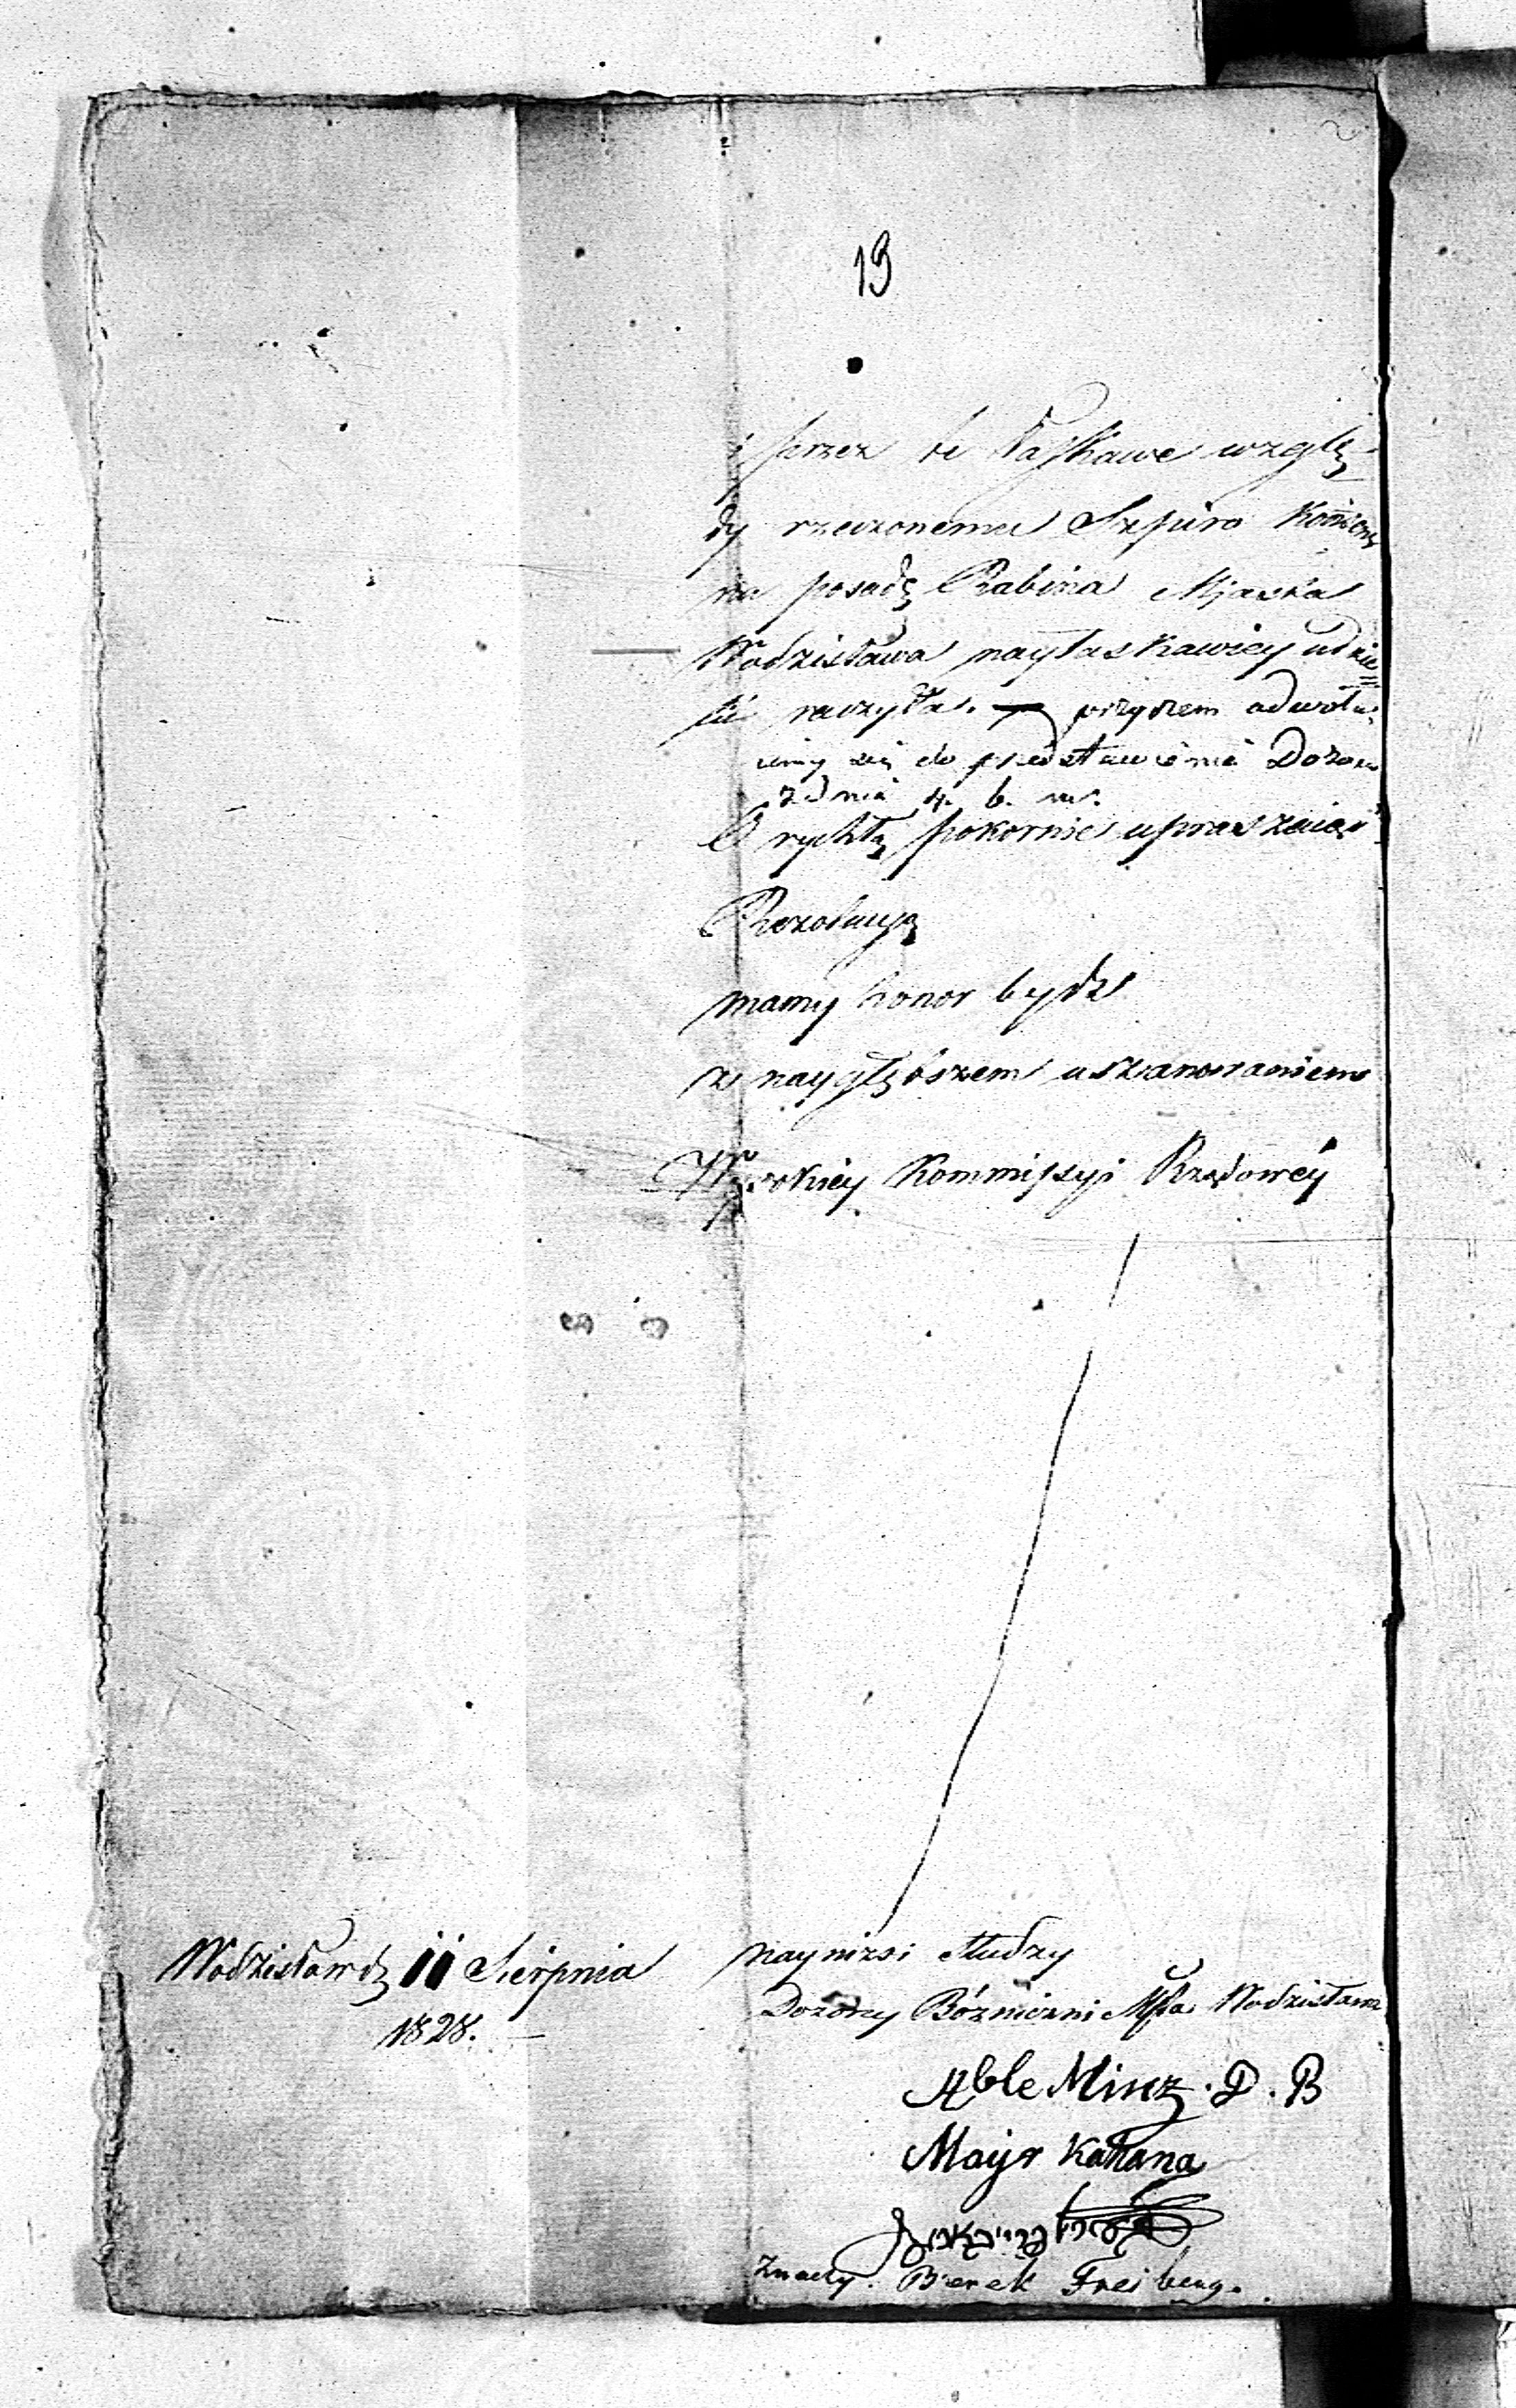 19
i przez te łaskawe wzglę-
dy rzeczonemu Szpiro
na posadę Rabina Miasta
Wodzisława nayłaskawiey udzie=
lić raczyła. przyczem odwołu-
iemy się do przedstawienia Dozoru
z dnia 4. b. m.
O rychłą pokornie upraszaiąc
Rezolucyą
mamy honor bydź
z naygłębszem uszanowaniem
Wysokiey Kommissyi Rządowéy
Wodzisław d 11 Sierpnia
1828.
nayniżsi słudzy
Dozory Bóżniczni Msta Wodzisława
Able Minz. D. B
Mayr Kahana
בערק פרייבערג
znaczy. Berek Freiberg.